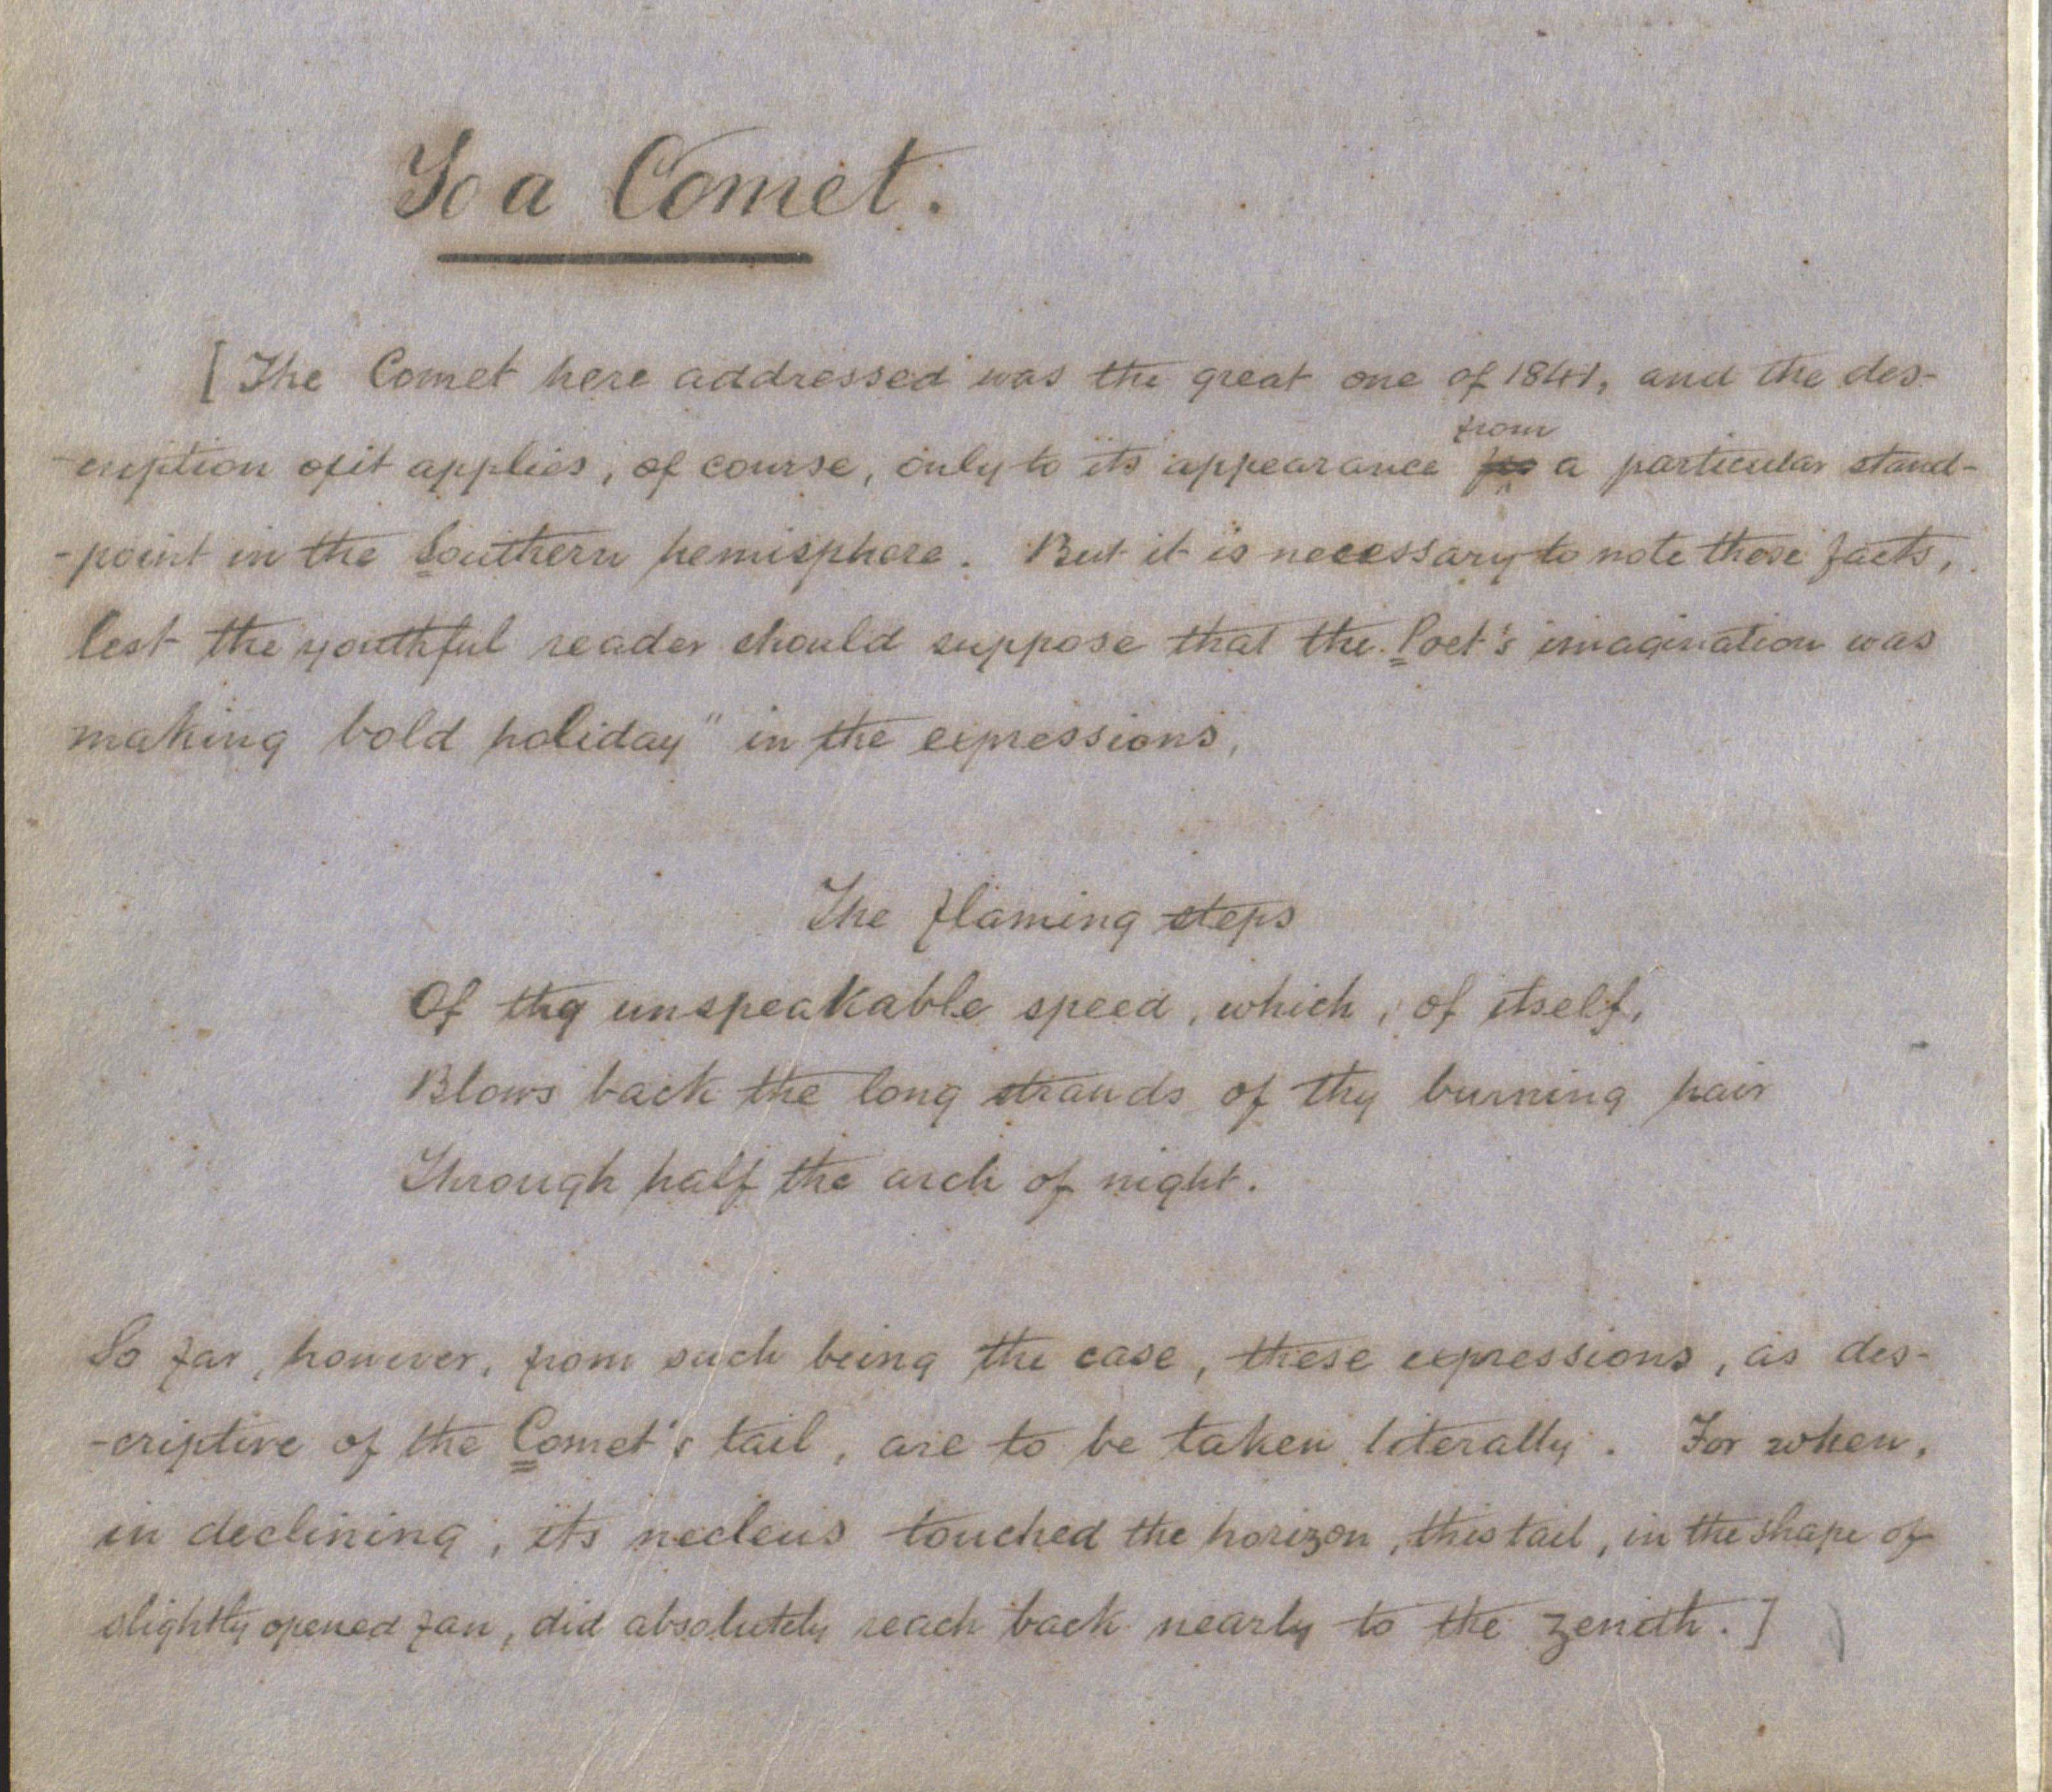 To a Comet.
[The Comet here addressed was the great one of 1841, and the des-
-cription of it applies, of course, only to its appearance from a particular stand-
-point in the Southern hemisphere. But it is necessary to note these facts,
lest the youthful reader should suppose that the Poet's imagination was
making bold holiday" in the expressions,
The flaming steps
Of thy unspeakable speed, which, of itself,
Blows back the long strands of thy burning hair
Through half the arch of night.
So far, however, from such being the case, these expressions, as des-
-criptive of the Comet's tail, are to be taken literally. For when,
in declining, its necleus touched the horizon, this tail, in the shape of
slightly opened fan, did absolutely reach back nearly to the zenith.]